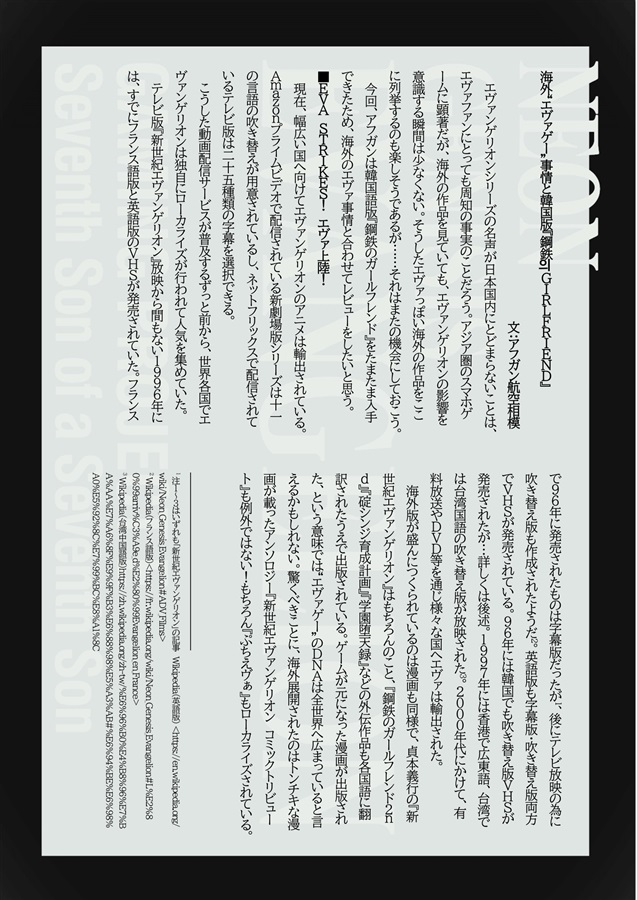 海外“エヴァゲー”事情と韓国版『鋼鉄の GIRLFRIEND』
文:アフガン航空相模
エヴァンゲリオンシリーズの名声が日本国内にとどまらないことは、
エヴァファンにとっても周知の事実のことだろう。アジア圏のスマホゲ
ームに顕著だが、海外の作品を見ていても、エヴァンゲリオンの影響を
意識する瞬間は少なくない。そうしたエヴァっぽい海外の作品をここ
に列挙するのも楽しそうであるが……それはまたの機会にしておこう。
今回、アフガンは韓国語版『鋼鉄のガールフレンド』をたまたま入手
できたため、海外のエヴァ事情と合わせてレビューをしたいと思う。
■EVA STRIKES! エヴァ上陸!
現在、幅広い国へ向けてエヴァンゲリオンのアニメは輸出されている。
Amazonプライムビデオで配信されている新劇場版シリーズは十一
の言語の吹き替えが用意されているし、ネットフリックスで配信されて
いるテレビ版は二十五種類の字幕を選択できる。
こうした動画配信サービスが普及するずっと前から、世界各国でエ
ヴァンゲリオンは独自にローカライズが行われて人気を集めていた。
テレビ版『新世紀エヴァンゲリオン』放映から間もない1996年に
は、すでにフランス語版と英語版のVHSが発売されていた。フランス
で96年に発売されたものは字幕版だったが、後にテレビ放映の為に
吹き替え版も作成されたようだ²。英語版も字幕版・吹き替え版両方
でVHSが発売されている。96年には韓国でも吹き替え版VHSが
発売されたが…詳しくは後述。1997年には香港で広東語、台湾で
は台湾国語の吹き替え版が放映された³。2000年代にかけて、有
料放送やDVD等を通じ様々な国へエヴァは輸出された。
海外版が盛んにつくられているのは漫画も同様で、貞本義行の『新
世紀エヴァンゲリオン』はもちろんのこと、『鋼鉄のガールフレンド2n
d』『碇シンジ育成計画』『学園堕天録』などの外伝作品も各国語に翻
訳されたうえで出版されている。ゲームが元になった漫画が出版され
た、という意味では“エヴァゲー”のDNAは全世界へ広まっていると言
えるかもしれない。驚くべきことに、海外展開されたのはトンチキな漫
画が載ったアンソロジー『新世紀エヴァンゲリオン コミックトリビュー
ト』も例外ではない!もちろん『ぷちえヴぁ』もローカライズされている。
¹ 注1~3はいずれも「新世紀エヴァンゲリオン」の記事 Wikipedia(英語版) <https://en.wikipedia.org/
wiki/Neon_Genesis_Evangelion#ADV_Films>
² Wikipedia(フランス語版) <https://fr.wikipedia.org/wiki/Neon_Genesis_Evangelion#L%E2%8
0%99arriv%C3%A9e_d%E2%80%99Evangelion_en_France>
³ Wikipedia(台湾中国語版)